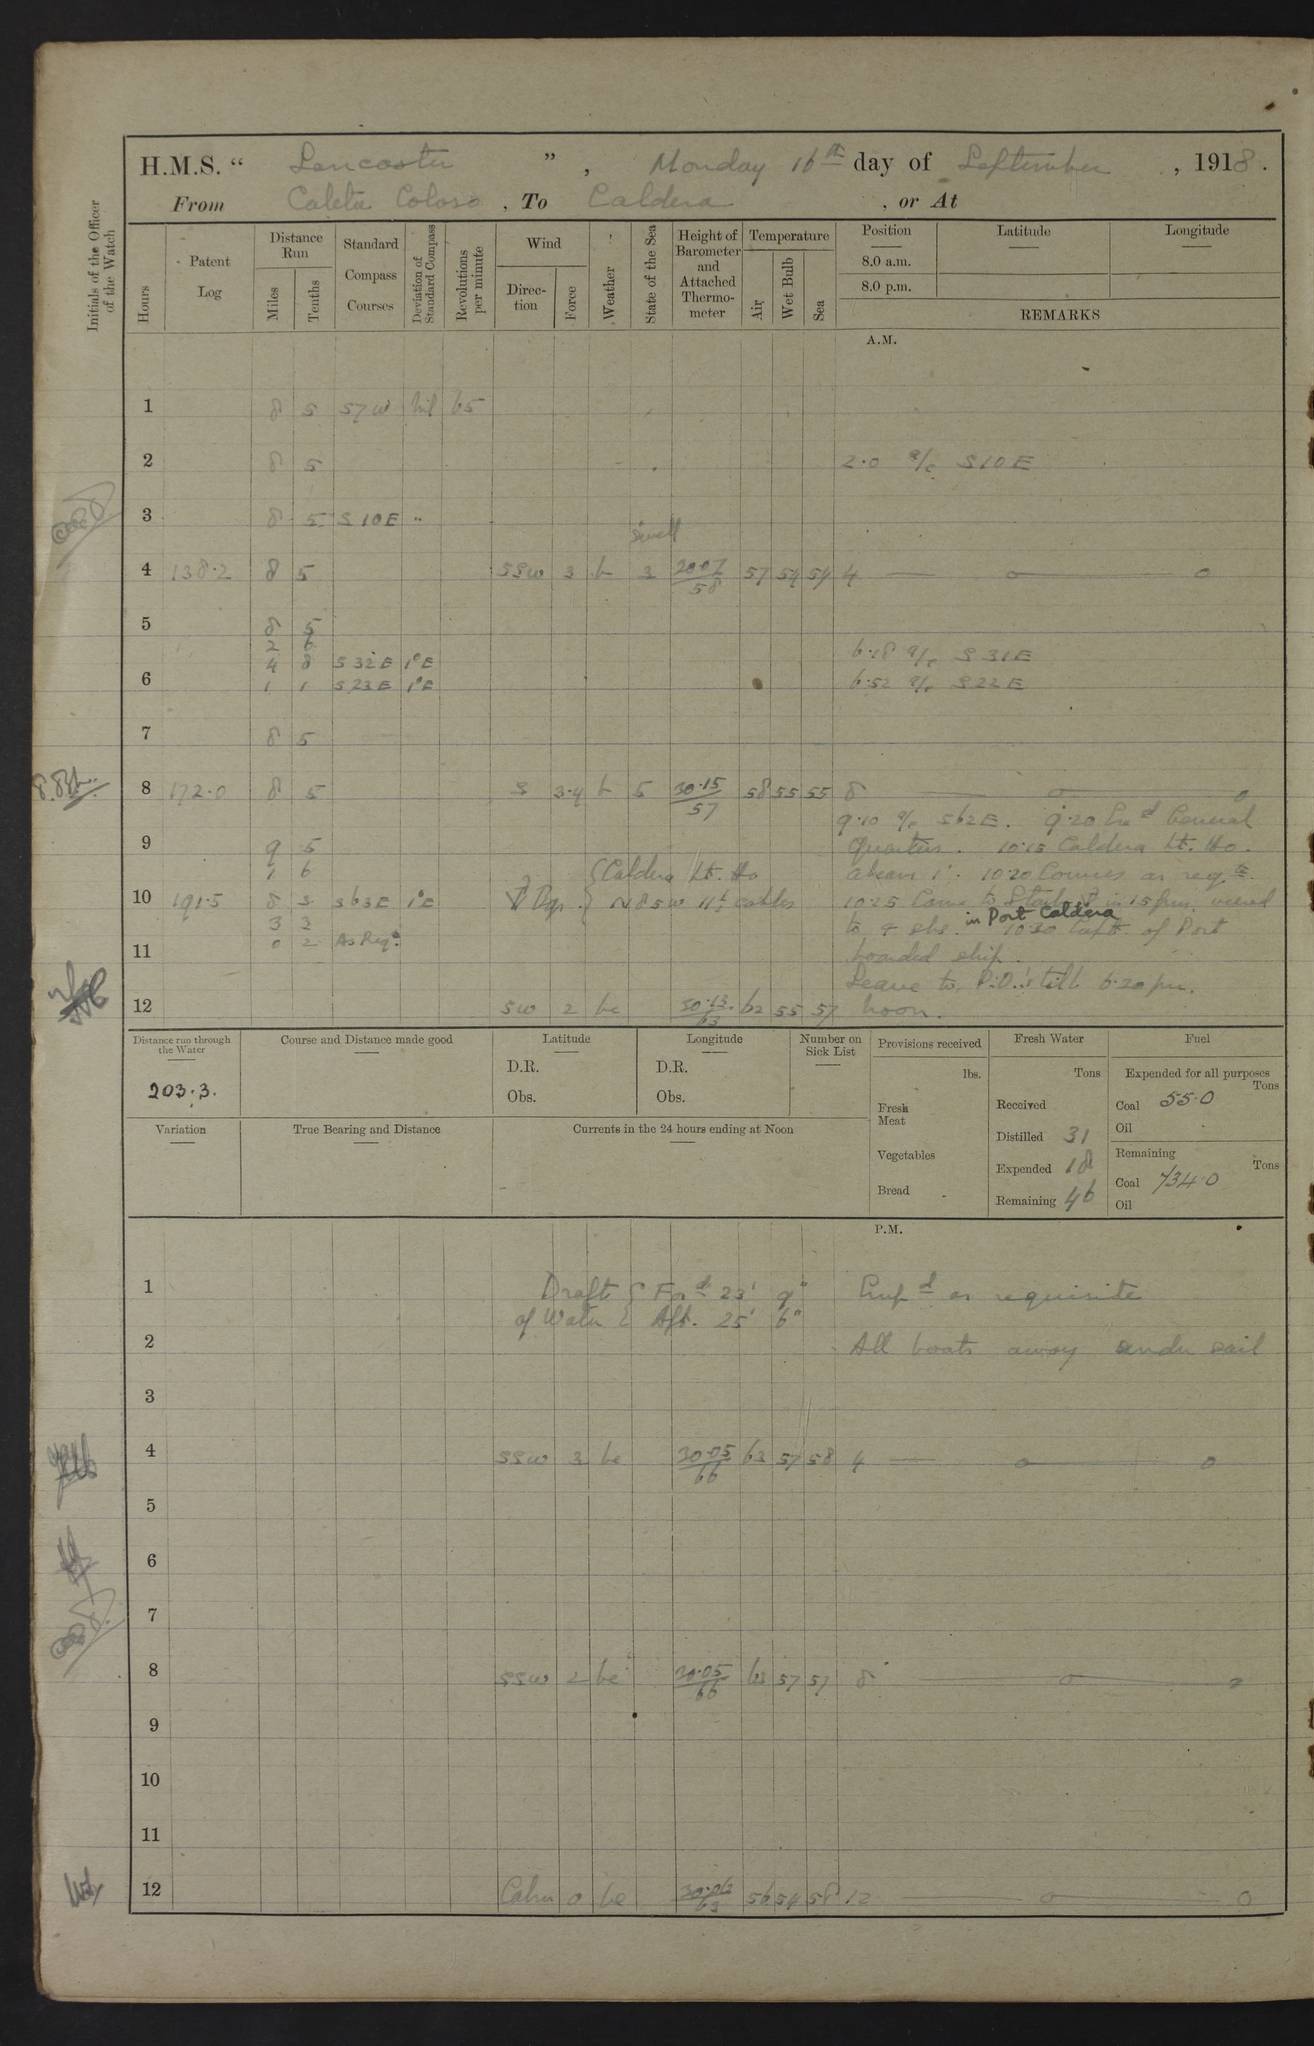 H.M.S. “ Lancaster ” , Monday 16th day of September , 1918 .
From Caleta Coloso , To Caldera , or At
Initials of the Officer of the Watch
Hours
Patent Log
Distance Run
Miles
Tenths
Standard Compass Courses
Deviation of Standard Compass
Revolutions per minute
Wind
Direction
Force
Weather
State of the Sea
Height of Barometer and Attached Thermometer
Temperature
Air
Wet Bulb
Sea
Position Latitude Longitude
8.0 a.m.
8.0 p.m.
REMARKS
A.M.
1 8 5 S7W Nil 65
2 8 5 2.0 a/c S10E
3 8 5 S10E "
swell
4 138.2 8 5 SSW 3 b 3 57 54 54 4 — o — o
58
5 8 5
2 6 6.18 a/c S31E
4 8 S32E 1°E
6 1 1 S23E 1°E 6.52 a/c S22E
7 8 5
8 172.0 8 5 S 3.4 b 5 30.15 58 55 55 8 — o — o
57
9.10 a/c S62E. 9.20 General
9 9 5 Quarters. 10.15 Caldera Lt. Ho.
1 6 { Caldera Lt. Ho abeam 1'. 10.20 Courses as reqte.
10 191.5 8 3 S63E 1°E N85W 11½ cables 10.25 Came to Starbd in 15 fms. veered
3 2 in Port Caldera
0 2 As Reqte to 4 shs. 10.30 Capt. of Port
11 boarded ship.
Leave to P.O.'s till 6.20 pm.
12 SW 2 bc 30.13 62 55 57 Noon.
63
Distance run through the Water
203.3.
Course and Distance made good
Latitude
D.R.
Obs.
Longitude
D.R.
Obs.
Number on Sick List
Provisions received
lbs.
Fresh Meat
Vegetables
Bread
Fresh Water
Tons
Received
Distilled 31
Expended 18
Remaining 46
Fuel
Expended for all purposes
Tons
Coal 55.0
Oil
Remaining
Tons
Coal 734.0
Oil
Variation
True Bearing and Distance
Currents in the 24 hours ending at Noon
P.M.
1 Draft { Ford 23' 9" Empd as requisite
of Water { Aft. 25' 6"
2 All boats away under sail
3
4 SSW 3 bc 30.05 63 57 58 4 — o — o
66
5
6
7
8 SSW 2 bc 30.05 63 57 57 8 — o — o
66
9
10
11
12 Calm 0 bc 30.06 56 54 58 12 — o — o
63